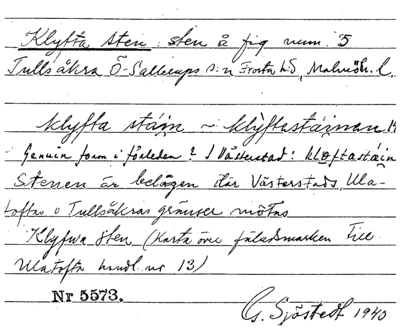 Klyfta sten: sten å fig num. 5
Tullsåkra Ö-Sallerups s:n Frosta hd, Malmöh. l.
klyfta stäin ~ klyftastäinan.
Genuin form i förleden? I Västerstad: kløftastäin
Stenen är belägen där Västerstads, Ula-
toftas o Tullsåkras gränser mötas
Klyfwa sten (Karta över fäladsmarken Till
Ulatofta handl. nr 13)
Nr 5573.
G. Sjöstedt 1940